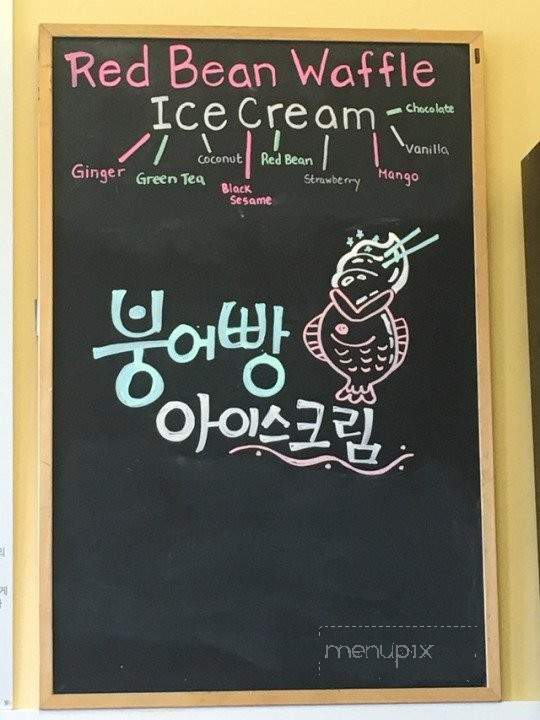 Red Bean Waffle
Ice Cream
Chocolate
Vanilla
Mango
Strawberry
Red Bean
Coconut
Black
Sesame
Green Tea
Ginger
붕어빵
아이스크림
menupix